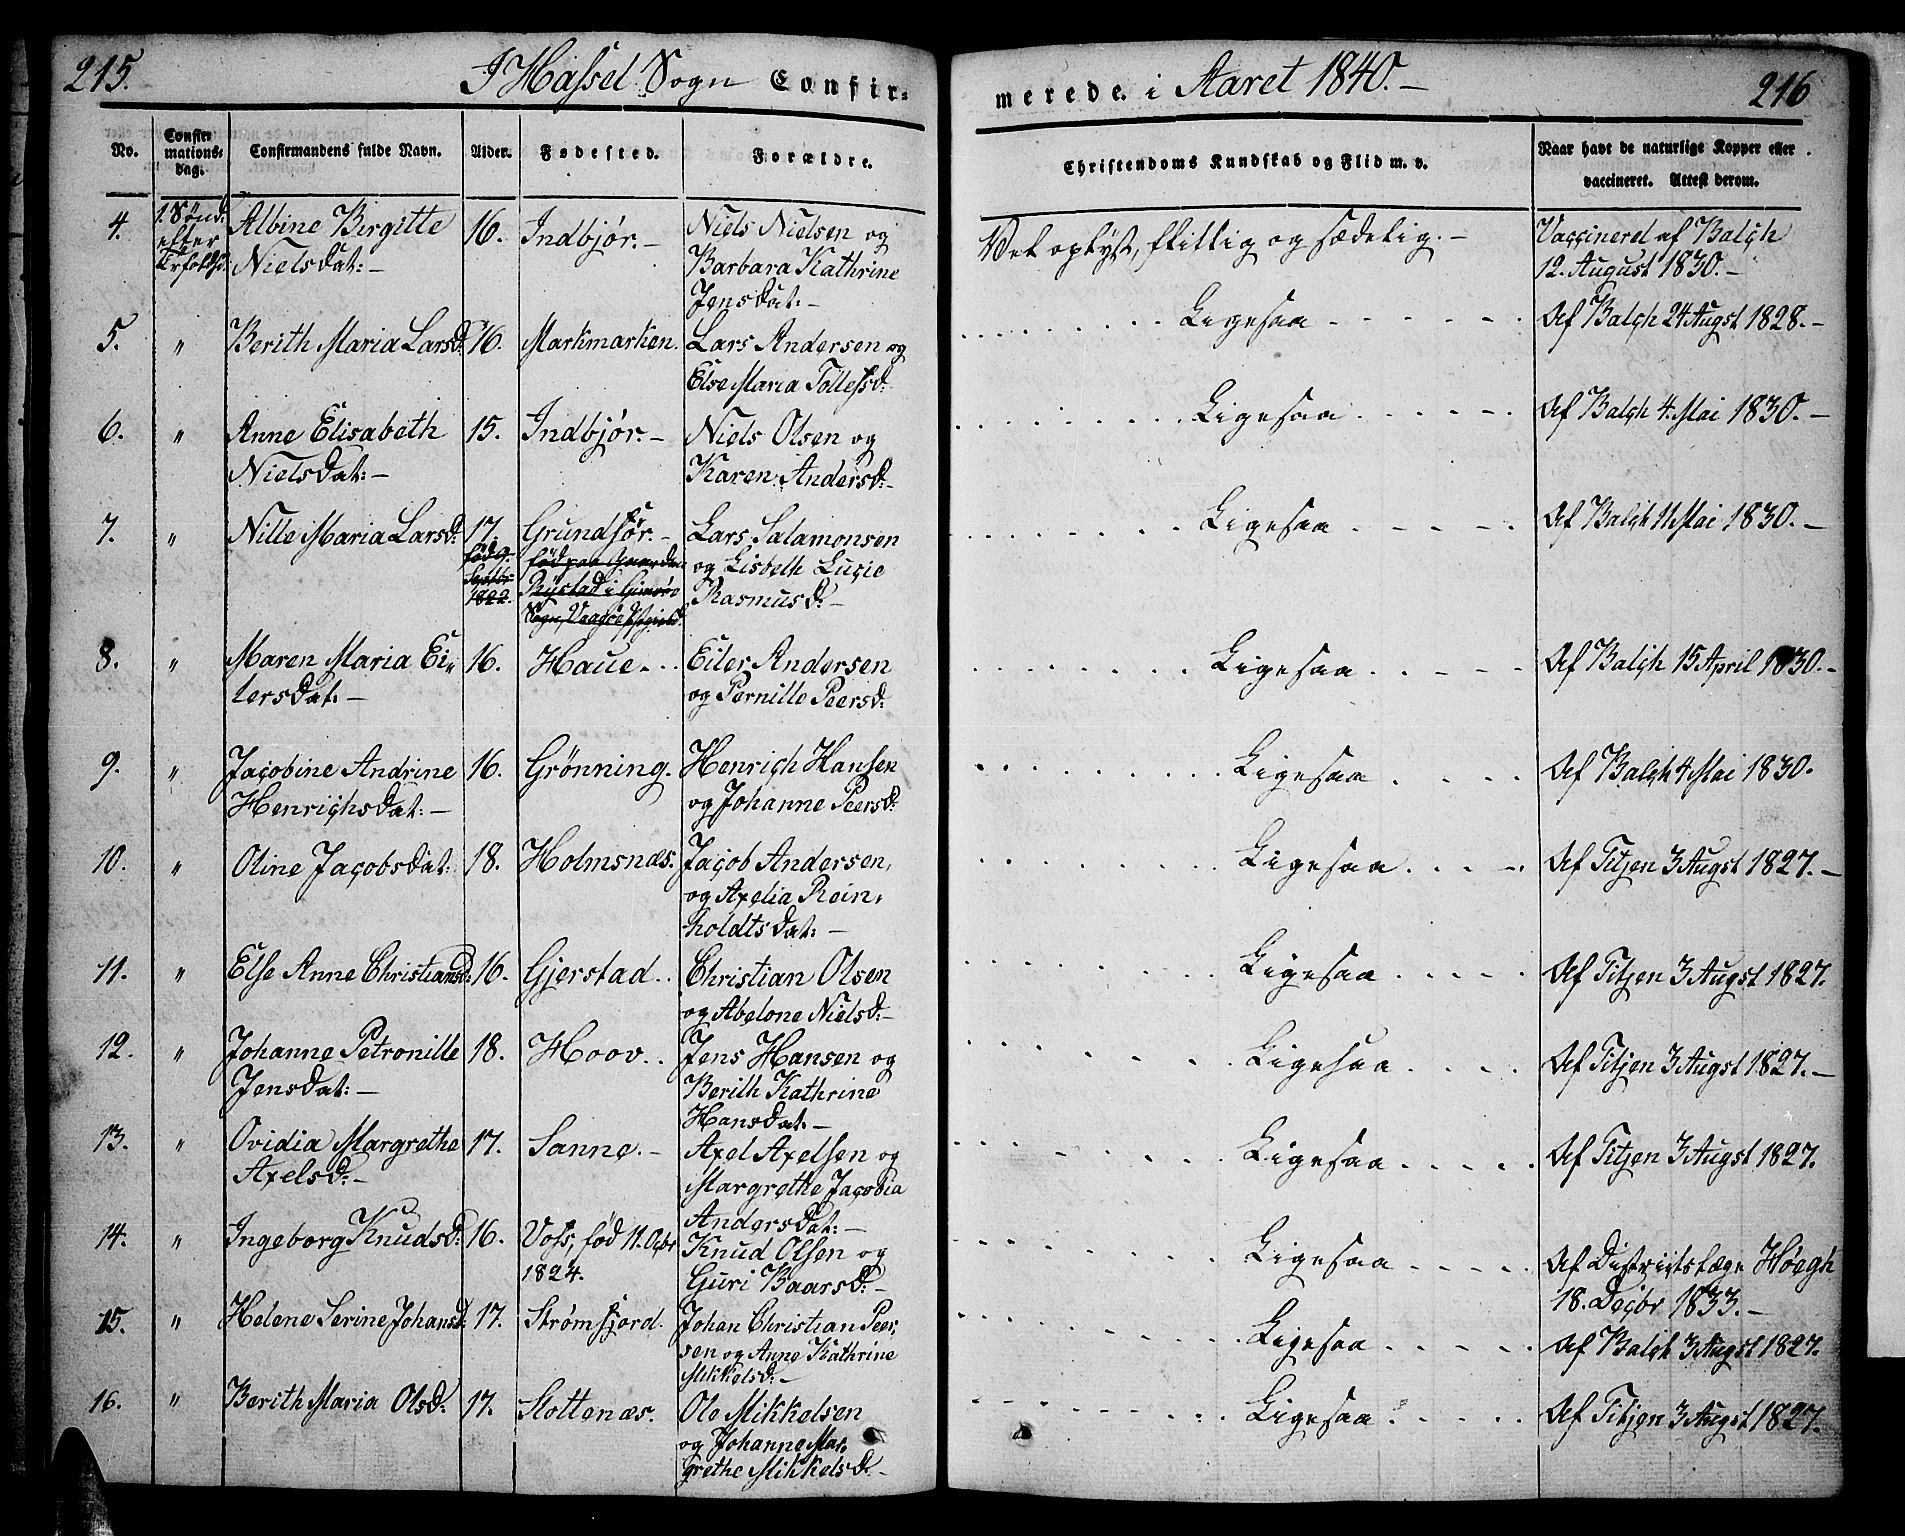 215.
I Hassel Sogn Confir-
merede i Aaret 1840.-
216
No.
Confir
mations-
dag.
Confirmandens fulde Navn.
Alder.
Fødested.
Forældre.
Christendoms Kundskab og Flid m. v.
Naar havt de naturlige Kopper eller
vaccineret. Attest derom.
4.
1. Sönd:
efter
Albine Birgitte
Nielsdat:-
16.
Indbjør.-
Niels Nielsen og
Barbara Kathrine
Jensdat:-
Vel oplyst, flittig og sædelig.-
Vaccineret af Balch
12. August 1830.-
5.
"
Berith Maria Larsd:
16.
Markmarken.
Lars Andersen og
Else Maria Tollefsd:
Ligesaa
Af Balch 24 Augst 1828.-
6.
"
Anne Elisabeth
Nielsdat:-
15.
Indbjør.-
Niels Olsen og
Karen Andersd:-
Ligesaa
Af Balch 4. Mai 1830.-
7.
"
Nille Maria Larsd:
17.
född 9.
Septbr:
1822.
Grundför.-
född paa Gaarden
Rystad i Gimsø
Sogn,
Lars Salamonsen
og Lisbeth Lucie
Rasmusd:-
Ligesaa
Af Balch 11 Mai 1830.-
8.
"
Maren Maria Ei-
lersdat:-
16.
Haue.
Eiler Andersen
og Pernille Peersd:
Ligesaa
Af Balch 15 April 1830.-
9.
"
Jacobine Andrine
Henrichsdat:-
16.
Grønning.
Henrich Hansen
og Johanne Peersd:
Ligesaa
Af Balch 4 Mai 1830.
10.
"
Oline Jacobsdat:
18.
Holmsnæs.
Jacob Andersen,
og Axelia Rein-
holdtsdat:-
Ligesaa
Af Titjen 3 Augst 1827.-
11.
"
Else Anne Christiansd:
16.
Gjerstad.
Christian Olsen
og Abelone Nielsd:-
Ligesaa
Af Titjen 3 Augst 1827.
12.
"
Johanne Petronille
Jensdat:-
18.
Hoov.
Jens Hansen og
Berith Kathrine
Hansdat.-
Ligesaa
Af Titjen 3 Augst 1827.-
13.
"
Ovidia Margrethe
Axelsd:-
17.
Sanne.-
Axel Axelsen og
Margrethe Jacobia
Andersdat:-
Ligesaa
Af Titjen 3 Augst 1827.
14.
"
Ingeborg Knudsd:
16.
Voss, fød 11. Ocbr
1824.
Knud Olsen og
Guri Baarsd:-
Ligesaa
Af Districtslæge Høegh
18. Decbr 1833.-
15.
"
Helene Serine Johansd:
17.
Strømfjord.
Johan Christian Peer-
sen og Anne Kathrine
Mikkelsd:-
Ligesaa
Af Balch 3 Augst 1827.
16.
"
Berith Maria Olsd:
17.
Slottenæs.
Ole Mikkelsen
og Johanne Mar-
grethe Mikkelsd:-
Ligesaa
Af Titjen 3 Augst 1827.